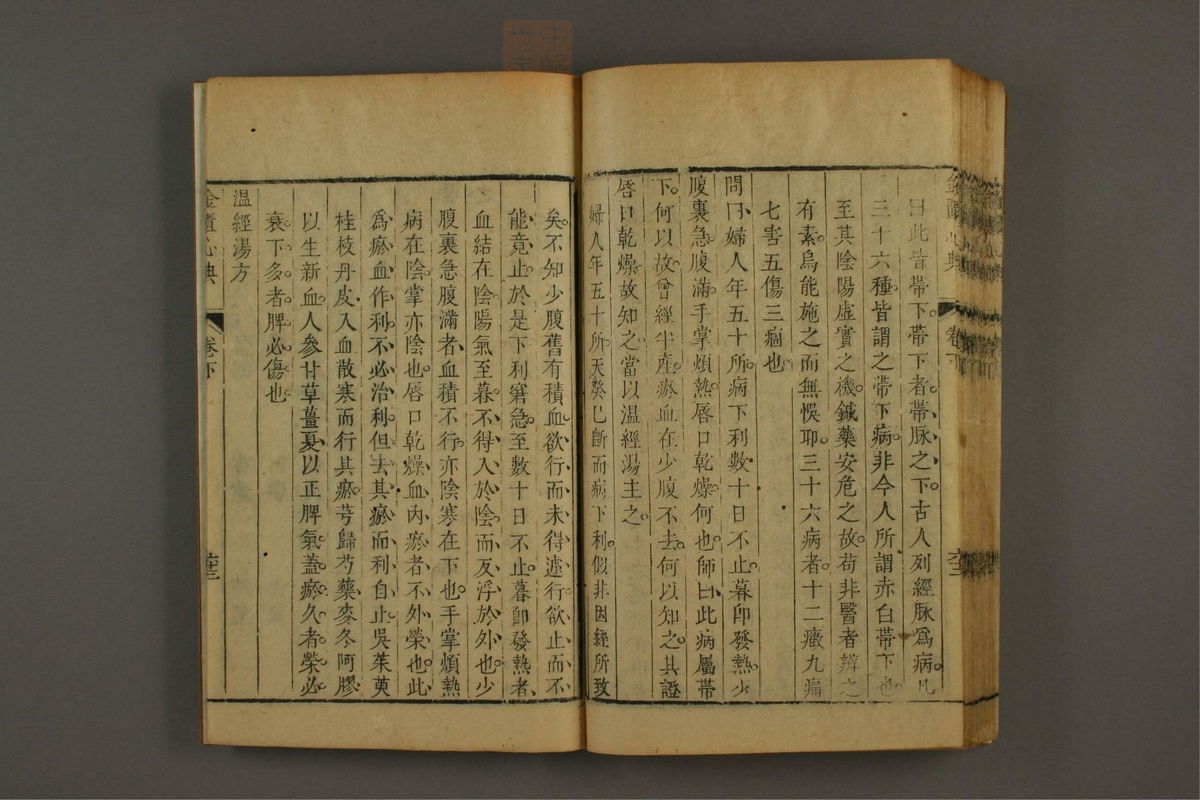 曰此皆帶下。帶下者帶脉之下。古人列經脉爲病。凡
三十六種。皆謂之帶下病。非今人所謂赤白帶下也。
至其陰陽虛實之機。鍼藥安危之故。苟非醫者辨之
有素。烏能施之而無悞耶。三十六病者。十二癥九痛
七害五傷三痼也
問曰婦人年五十所。病下利數十日不止。暮即發熱。少
腹裏急。腹滿。手掌煩熱。唇口乾燥。何也。師曰此病屬帶
下。何以故。曾經半產。瘀血在少腹不去。何以知之。其證
唇口乾燥。故知之。當以温經湯主之。
婦人年五十所。天癸已斷而病下利。似非因經所致
矣。不知少腹舊有積血。欲行而未得遽行。欲止而不
能竟止。於是下利窘急。至數十日不止。暮即發熱者。
血結在陰。陽氣至暮。不得入於陰。而反浮於外也。少
腹裏急腹滿者。血積不行。亦陰寒在下也。手掌煩熱
病在陰。掌亦陰也。唇口乾燥。血內瘀者。不外榮也。此
爲瘀血作利。不必治利。但去其瘀而利自止。吳茱萸
桂枝丹皮。入血散寒而行其瘀。芎歸芍藥麥冬阿膠
以生新血。人參甘草薑夏。以正脾氣。蓋瘀久者。榮必
衰。下多者。脾必傷也。
温經湯方
金匱心典
卷下
六十三